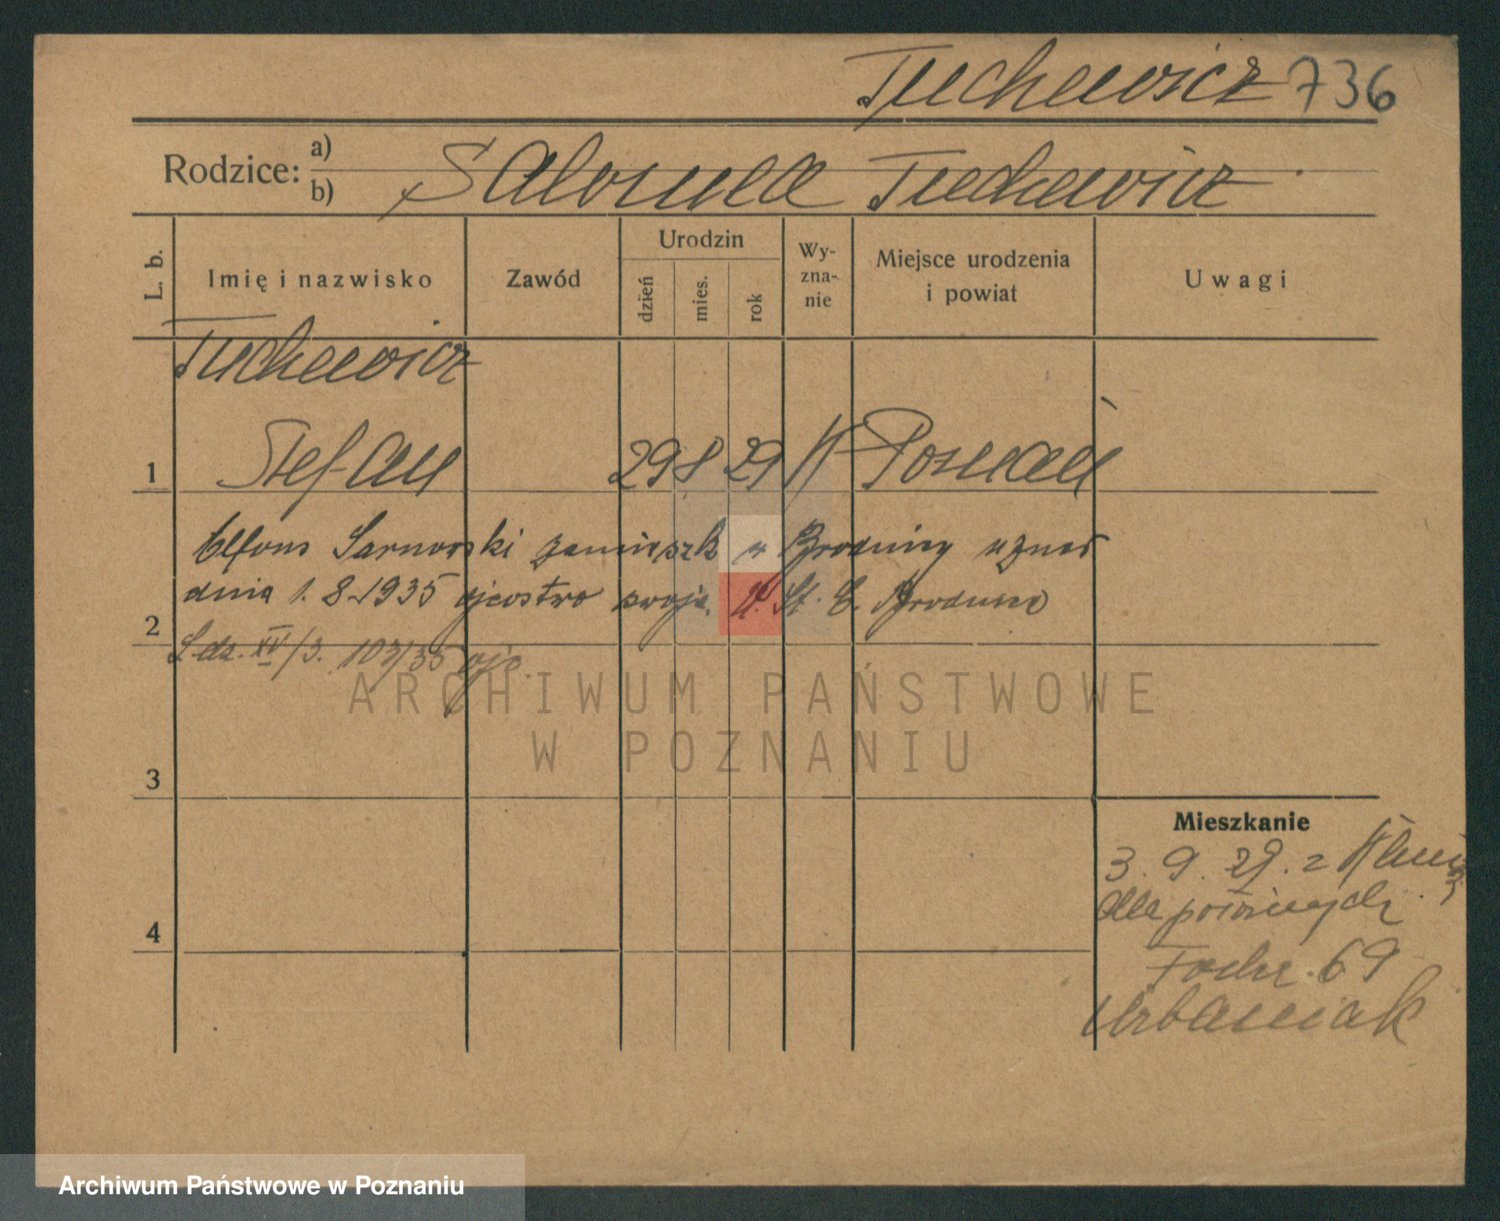 Tuchewicz 736
Rodzice: a)
b) Salomea Tuchewicz
L. b.
Imię i nazwisko
Zawód
Urodzin
dzień
mies.
rok
Wy-
zna-
nie
Miejsce urodzenia
i powiat
Uwagi
Tuchewicz
1 Stefan 29 8 29 K Poznań
Alfons Sarnowski zamieszk w Brodnicy uznał
dnia 1. 8. 1935 ojcostwo swoje. U. St. C. Brodnica
2
L. dz. XV/3. 103/35 ojc.
ARCHIWUM PAŃSTWOWE
W POZNANIU
3
Mieszkanie
3. 9. 29. z
dla położnych
4
Foch. 69
Urbaniak
Archiwum Państwowe w Poznaniu